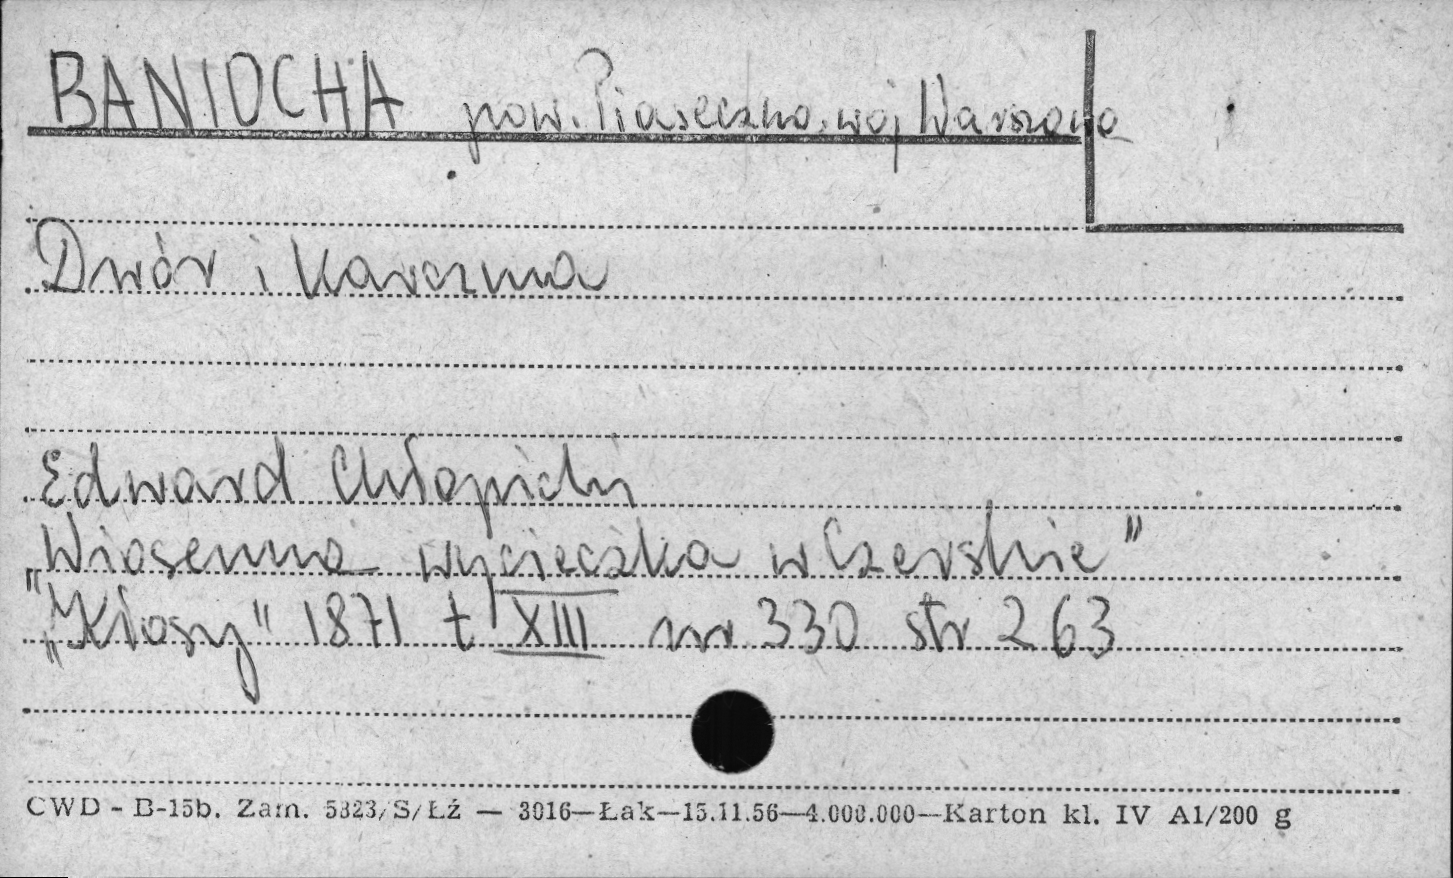 BANIOCHA pow. Piaseczno, woj Warszawa
Dwór i Karczma
Edward Chłopicki
„Wiosenna wycieczka w Czerskie"
„Kłosy" 1871 t XIII nr 330 str 263
CWD - B-15b. Zam. 5823/S/Łź — 3016—Łak—15.11.56—4.000.000—Karton kl. IV A1/200 g